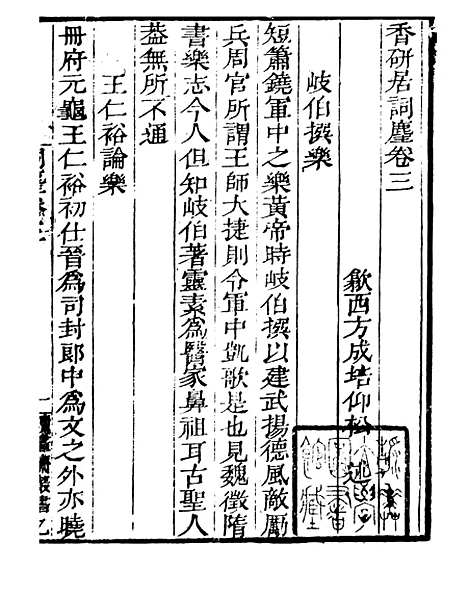 香研居詞麈卷三
歙西方成培仰松 述
岐伯撰樂
短簫鐃軍中之樂黃帝時岐伯撰以建武揚德風敵勵
兵周官所謂王師大捷則令軍中凱歌是也見魏徵隋
書樂志今人但知岐伯著靈素爲醫家鼻祖耳古聖人
葢無所不通
王仁裕論樂
冊府元龜王仁裕初仕晉爲司封郎中爲文之外亦曉
一 讀畫齋叢書乙